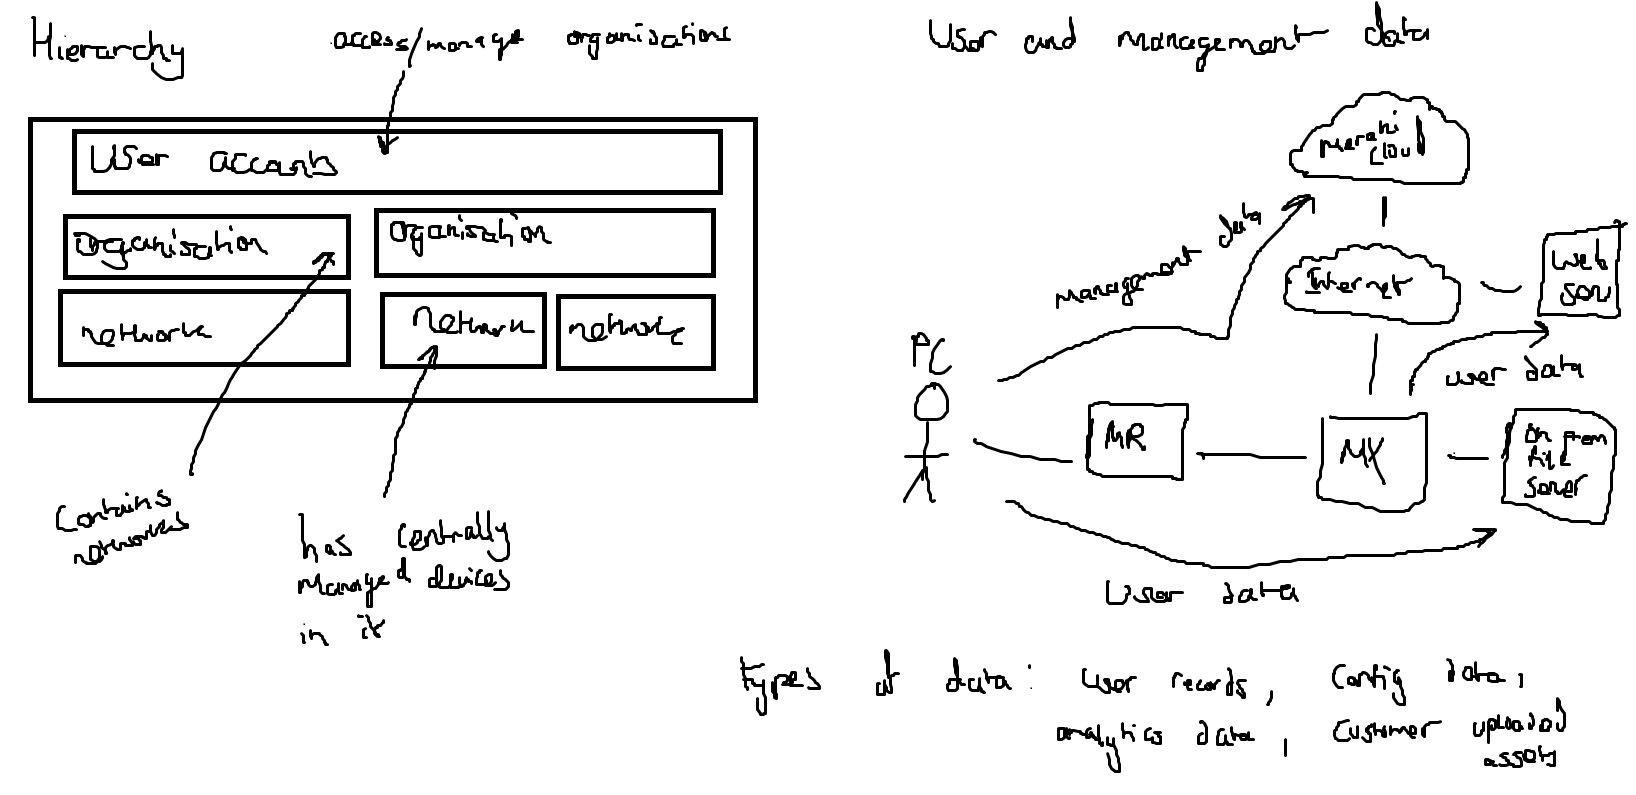 Hierarchy
access/manage organisations
User accounts
organisation
organisation
network
network
network
Contains
networks
has centrally
managed devices
in it
User and management data
meraki
cloud
management data
Internet
web
serv
user data
PC
MR
MX
On prem
file
server
User data
types of data: user records, Config data,
analytics data, Customer uploaded
assets